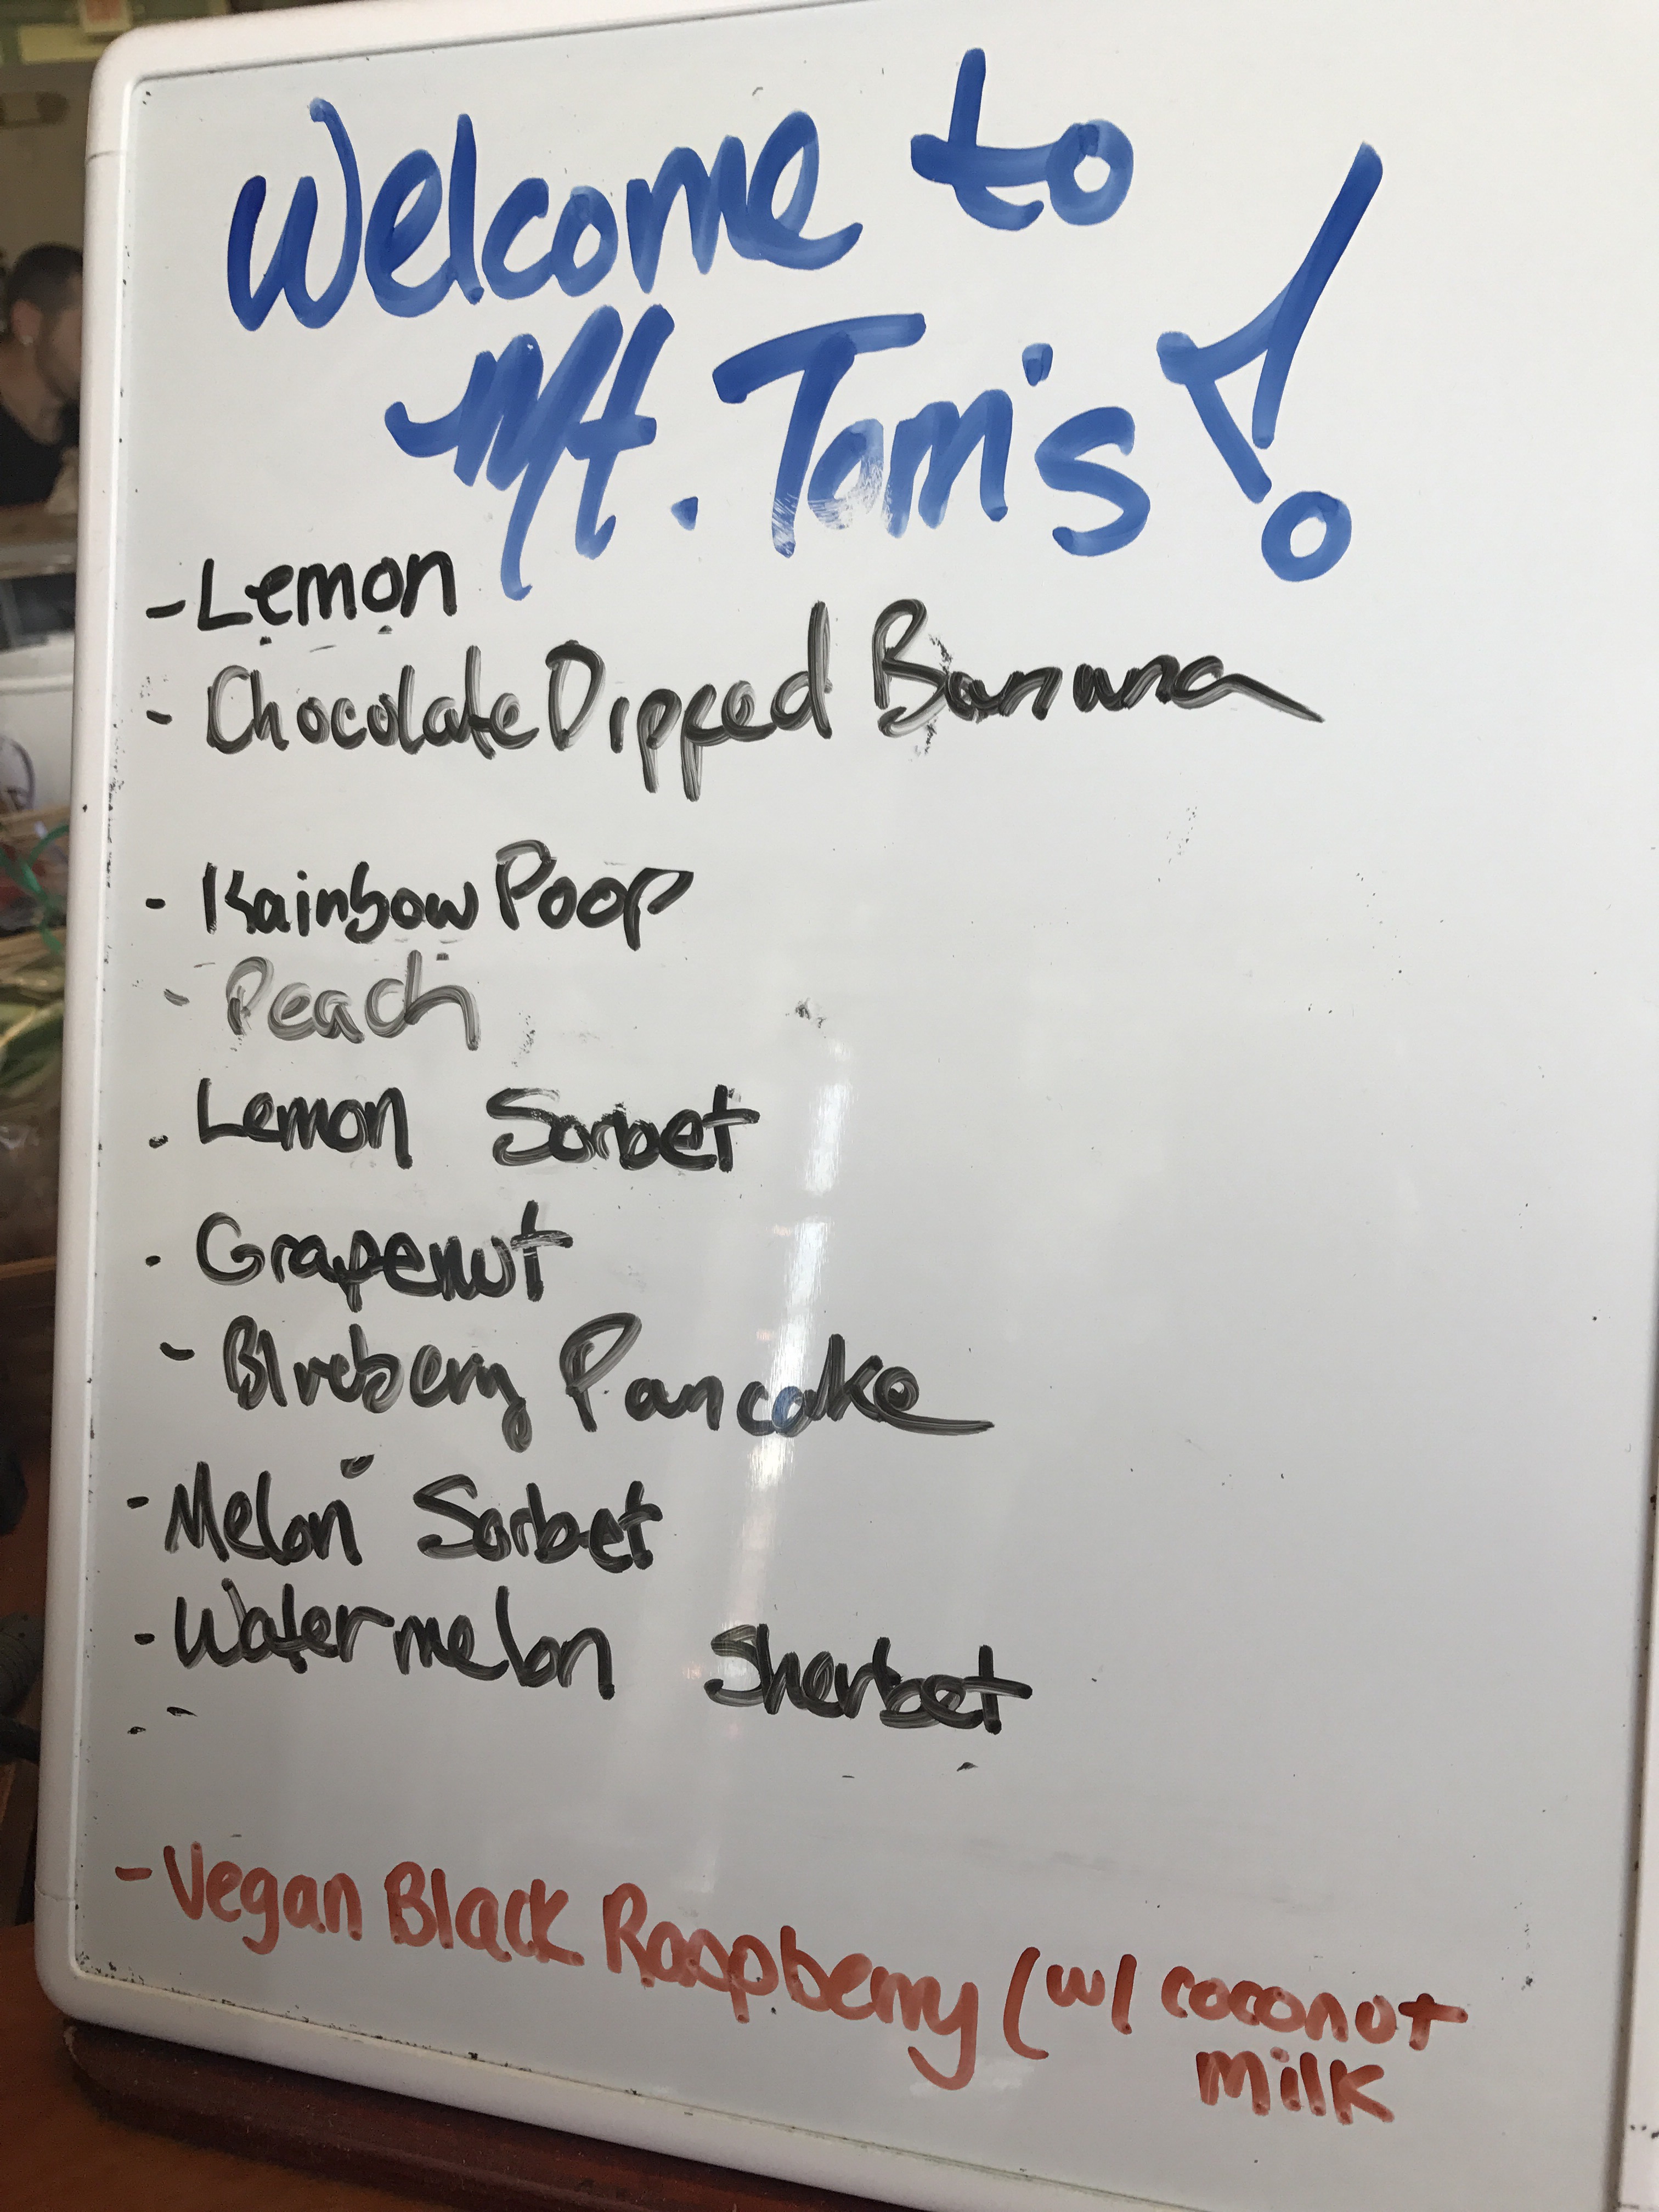 Welcome to
Mt. Tom's!
- Lemon
- Chocolate Dipped Banana
- Rainbow Poop
- Peach
- Lemon Sorbet
- Grapenut
- Blueberry Pancake
- Melon Sorbet
- Watermelon Sherbet
- Vegan Black Raspberry (w/ coconut
milk